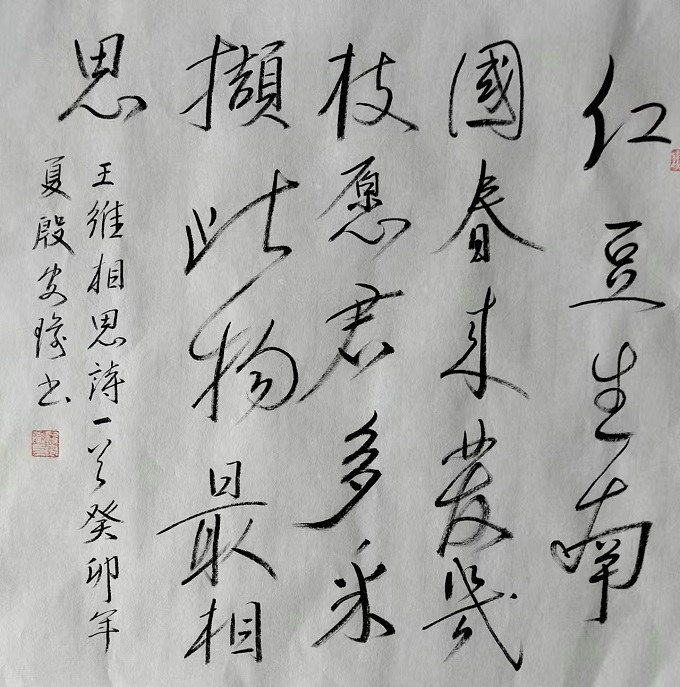 红豆生南
國春来发幾
枝愿君多采
擷此物最相
思
王維相思詩一首癸卯年
夏殷安
书